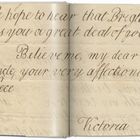 I hope to hear that
you a great deal of
Believe me, my dear
your very affection
Victoria